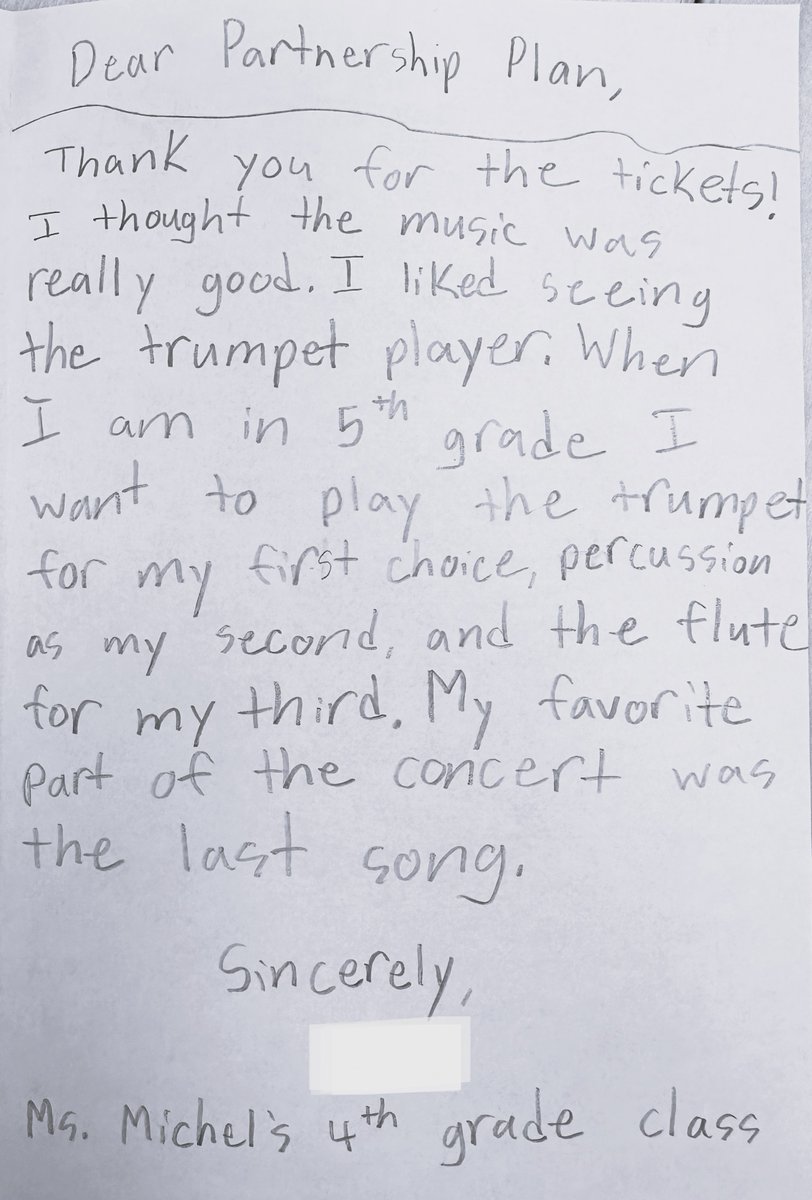 Dear Partnership Plan,
Thank you for the tickets!
I thought the music was
really good. I liked seeing
the trumpet player. When
I am in 5th grade I
want to play the trumpet
for my first choice, percussion
as my second, and the flute
for my third. My favorite
part of the concert was
the last song.
Sincerely,
Ms. Michel's 4th grade class